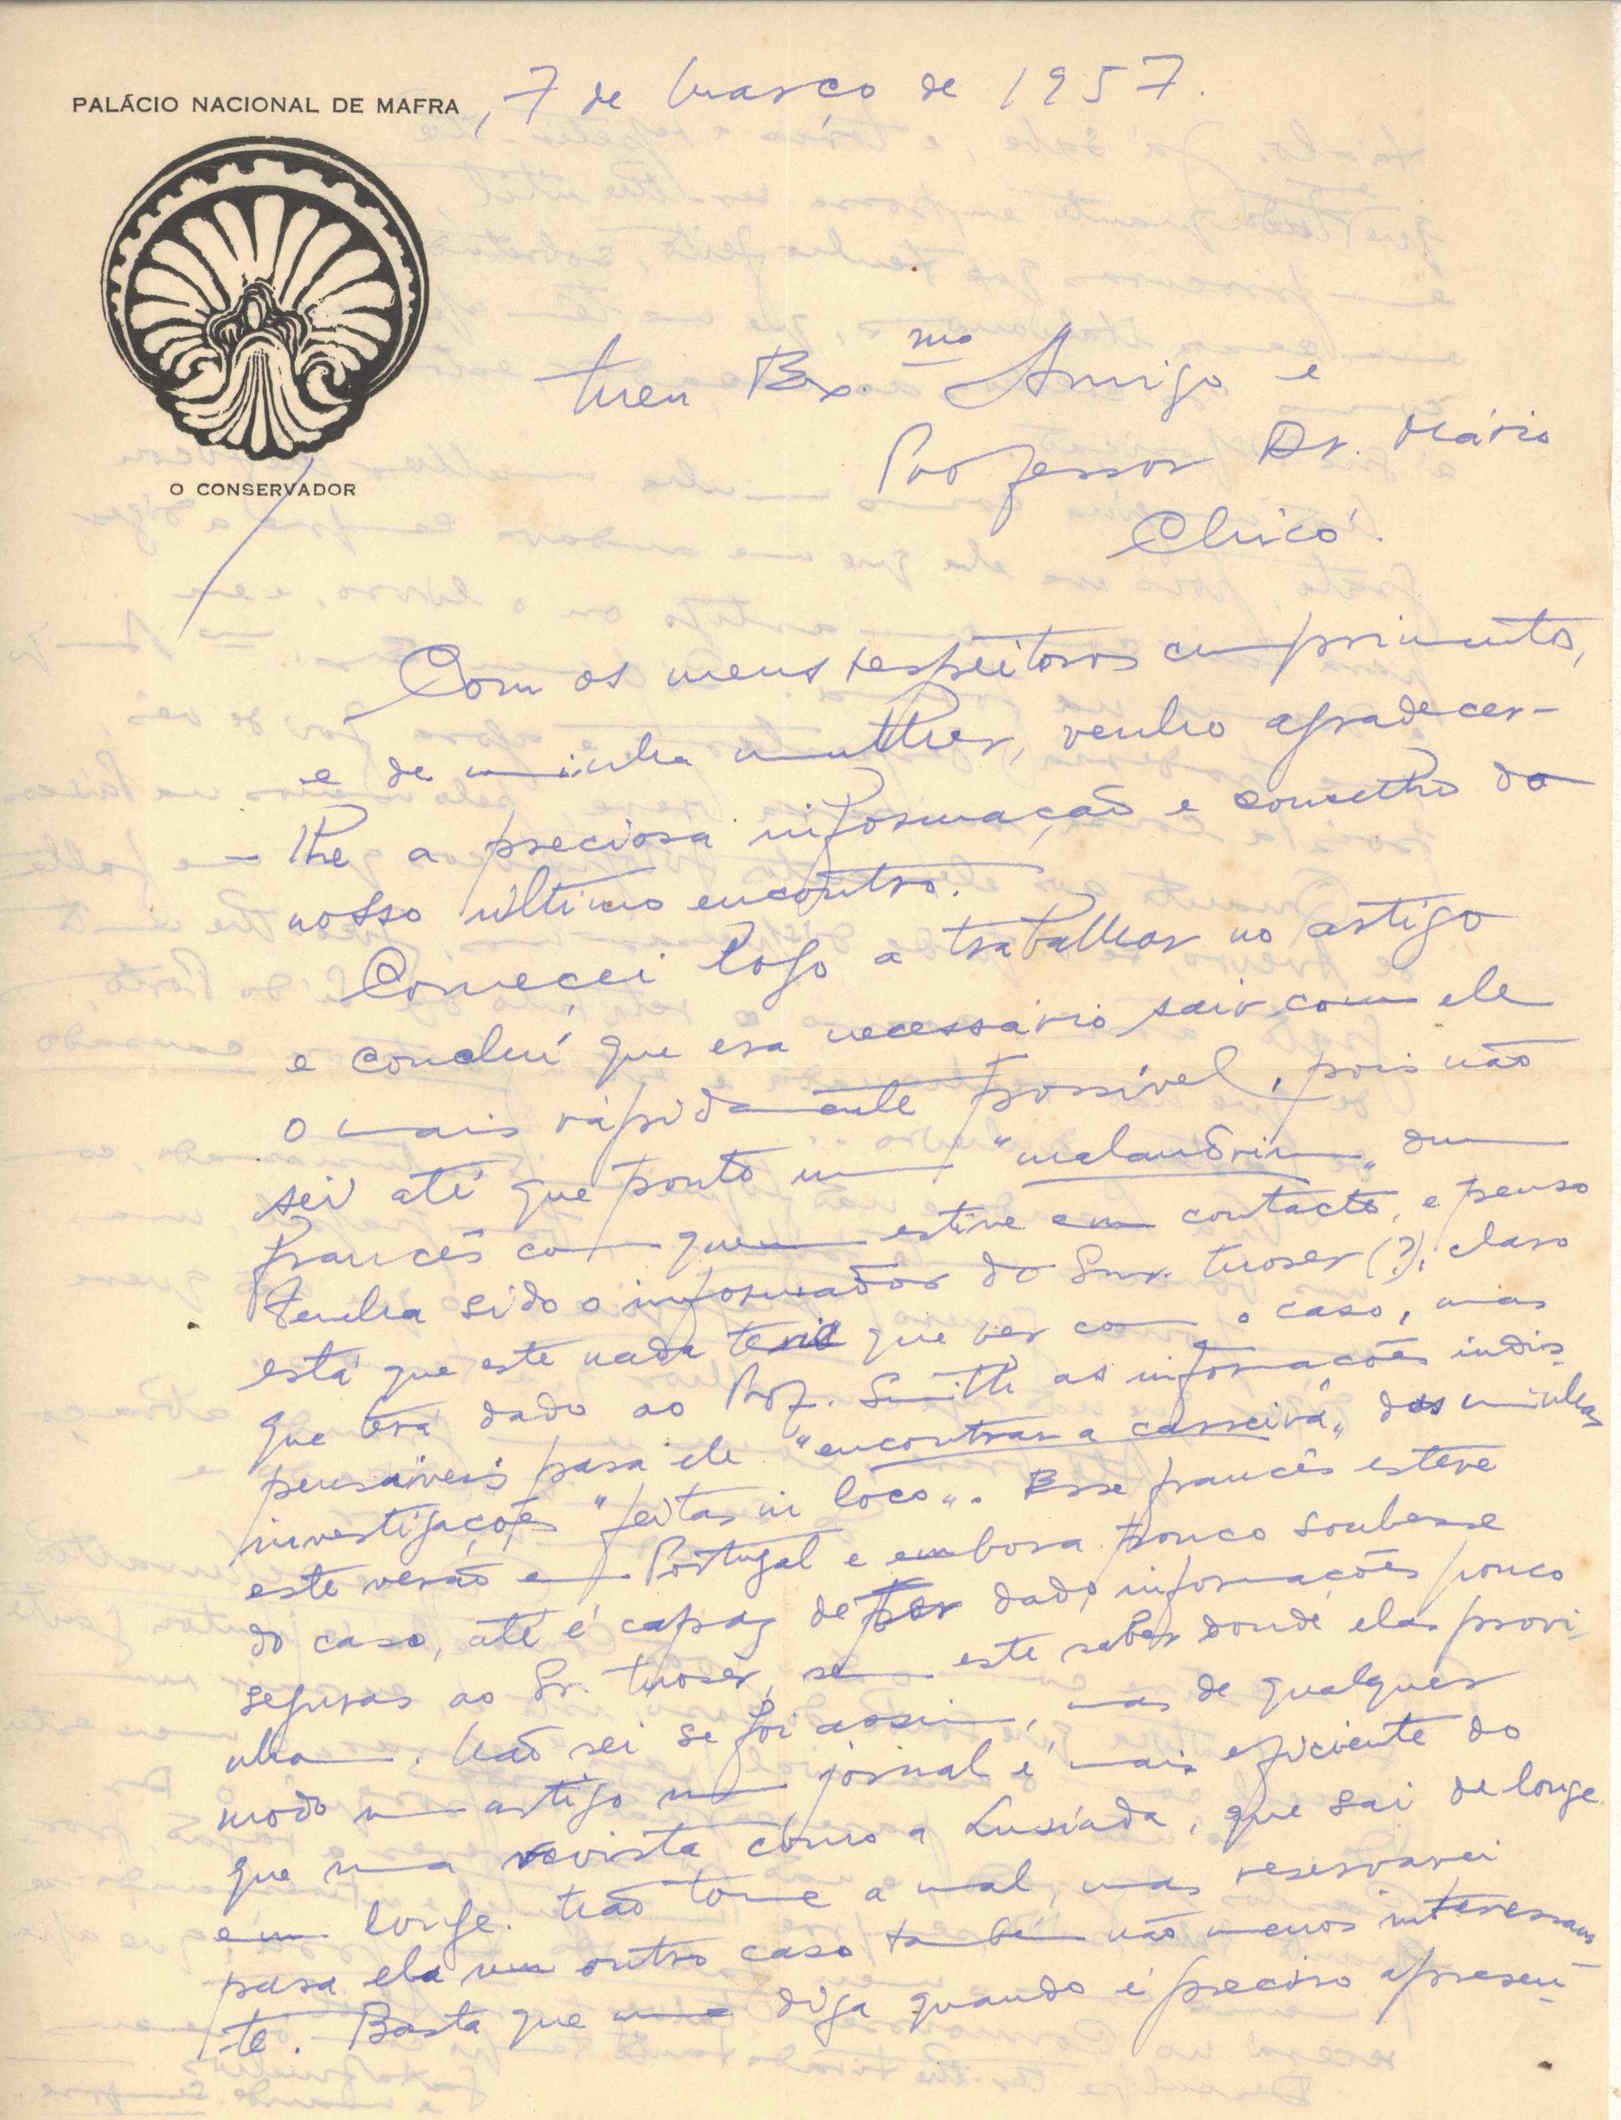 PALÁCIO NACIONAL DE MAFRA, 7 de Março de 1957.
O CONSERVADOR
Meu Ex.mo Amigo e
Professor Dr. Mário
Chicó.
Com os meus respeitosos cumprimentos,
e de minha mulher, venho agradecer-
-lhe a preciosa informação e conselho do
nosso último encontro.
Começei logo a trabalhar no artigo
e concluí que era necessário sair com ele
o mais rápidamente possível, pois não
sei até que ponto um "malandrim" dum
francês com quem estive em contacto, e penso
tenha sido o informador do Snr. Moser (?), claro
está que este nada tem que ver com o caso, mas
que terá dado ao Prof. Smith as informações indis-
pensáveis para ele "encontrar a carreira" das minhas
investigações "feitas in loco". Esse francês esteve
este verão em Portugal e embora pouco soubesse
do caso, até é capaz de ter dado informações pouco
seguras ao Sr. Moser, sem este saber donde elas provi-
nham. Não sei se foi assim, mas de qualquer
modo um artigo num jornal é mais eficiente do
que uma revista como a Lusíada, que sai de longe
em longe. Não tome a mal, mas reservarei
para ela um outro caso também não menos interessan-
te. Basta que me diga quando é preciso apresen-